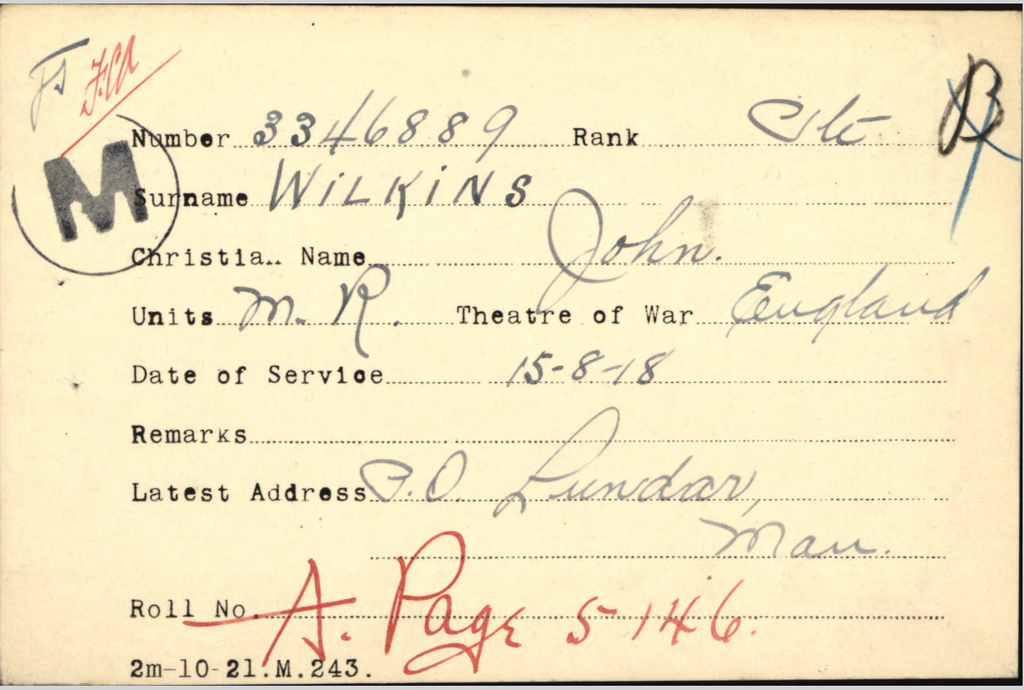 B
M
Number 3346889 Rank Pte
Surname WILKINS
Christia.. Name John.
Units M. R. Theatre of War England
Date of Service 15-8-18
Remarks
Latest Address P.O. Lundar,
Man.
Roll No. A. Page 5146.
2m-10-21.M.243.